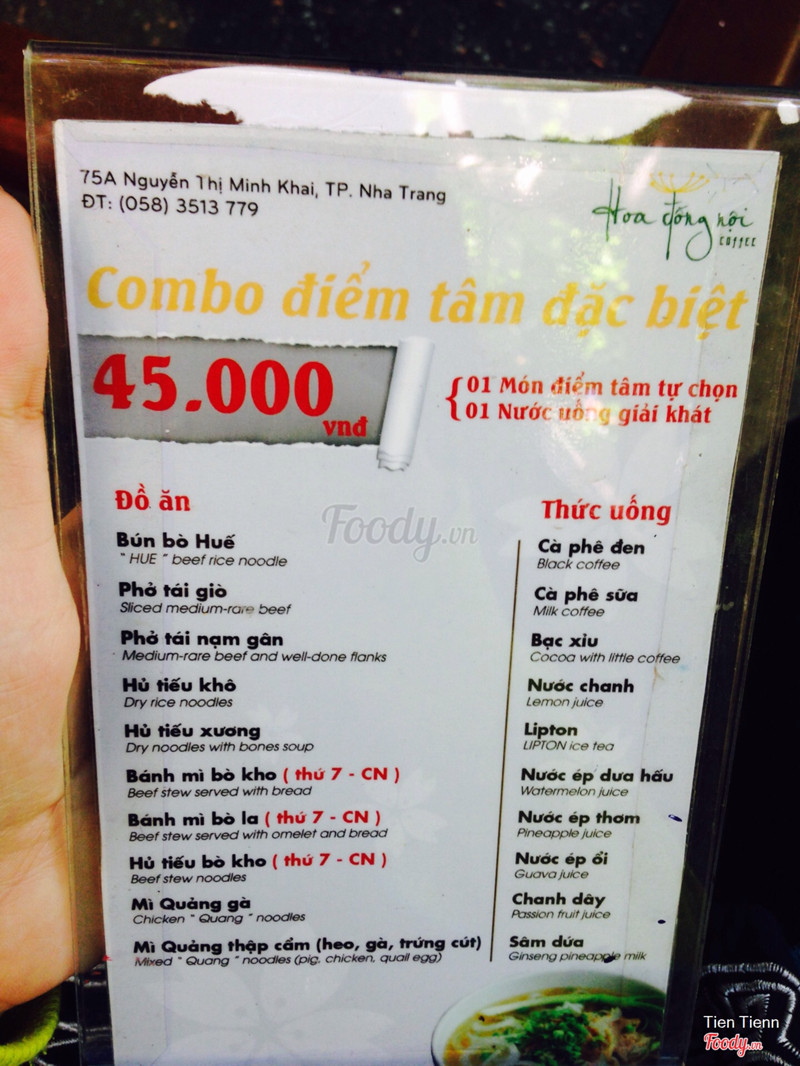 75A Nguyễn Thị Minh Khai, TP. Nha Trang
ĐT: (058) 3513 779
Hoa đồng nội
COFFEE
Combo điểm tâm đặc biệt
45.000
vnđ
01 Món điểm tâm tự chọn
01 Nước uống giải khát
Foody.vn
Đồ ăn
Bún bò Huế
" HUE " beef rice noodle
Phở tái giò
Sliced medium-rare beef
Phở tái nạm gân
Medium-rare beef and well-done flanks
Hủ tiếu khô
Dry rice noodles
Hủ tiếu xương
Dry noodles with bones soup
Bánh mì bò kho ( thứ 7 - CN )
Beef stew served with bread
Bánh mì bò la ( thứ 7 - CN )
Beef stew served with omelet and bread
Hủ tiếu bò kho ( thứ 7 - CN )
Beef stew noodles
Mì Quảng gà
Chicken " Quang " noodles
Mì Quảng thập cẩm (heo, gà, trứng cút)
Mixed " Quang " noodles (pig, chicken, quail egg)
Thức uống
Cà phê đen
Black coffee
Cà phê sữa
Milk coffee
Bạc xỉu
Cocoa with little coffee
Nước chanh
Lemon juice
Lipton
LIPTON ice tea
Nước ép dưa hấu
Watermelon juice
Nước ép thơm
Pineapple juice
Nước ép ổi
Guava juice
Chanh dây
Passion fruit juice
Sâm dứa
Ginseng pineapple milk
Tien Tienn
Foody.vn